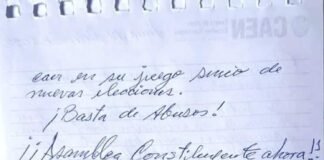 CAEN
caer en su juego sino de
nuevas elecciones.
¡Basta de Abusos!
¡¡Asamblea Constituyente ahora!!